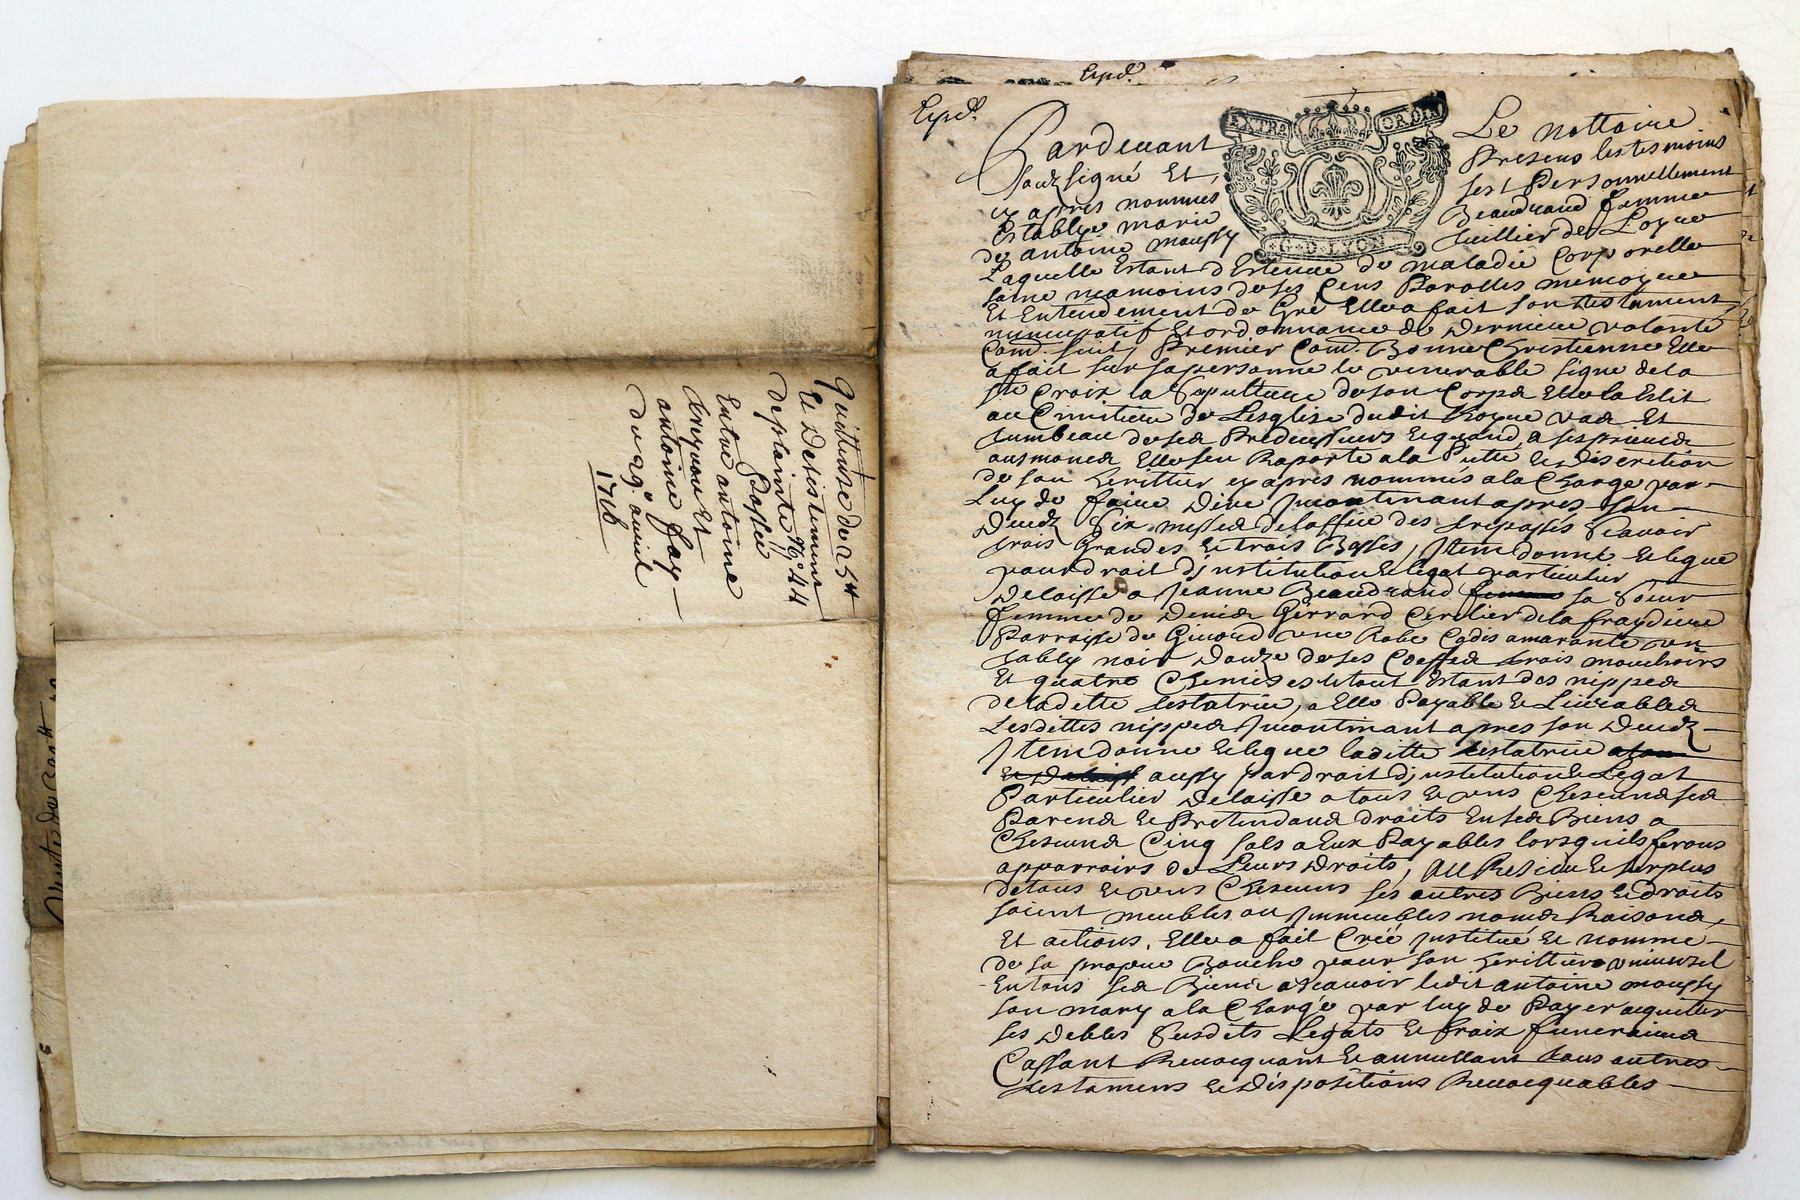 Quittense de 25tt
et desistement
de plainte N° 44
Passée
Entre antoine
et
antoine fay
du 29e avril
1716
Expd.
Expd.
EXTRA ORDIN
G·D·LYON
Pardevant Le nottaire
soubzsigné Et Presens les tesmoins
cy apres nommés sest Personnellement
Establye marie Beaudrand femme
de antoine moussy Cuillier de Loyre
Laquelle Estant destenue de maladie Corporelle
saine neamoins de ses Cens Parolles memoyre
Et Entendement de Gré Elle a fait son testament
nuncupatif Et ordonnance de Derniere volonté
Com. suit, Premier Com. Bonne Chrestienne Elle
a fait sur sa personne le venerable signe de la
ste Croix la Sepulture de son Corps Elle la Eslit
au Cimitiere de Lesglise dudit Loyre vas Et
tumbeau de ses Predecesseurs Et quand a ses prieres
ausmones Elle sen Raporte a la Piette et discretion
de son herittier cy apres nommés a la Charge par
Luy de faire dire Incontinant apres son
Decedz Six messes de loffice des trepassés Scavoir
trois Grandes et trois Basses, Item donne et legue
pour droit dinstitution et legat particulier
delaisse a Jeanne Beaudrand femme sa Soeur
femme de Denis Girrard Cerclier de la fraydiere
Parroisse de Givord une Robe Cadis amarante un
tably noir Douze de ses Coeffes trois mouchoirs
Et quatre Chemises le tout Estant des nippes
de ladette testatrice, a Elle Payable et Livrables
Lesdittes nippes Incontinant apres son Decedz
Item donne et legue laditte testatrice
aussy par droit dinstitution et Legat
Particulier Delaisse a tous et uns Chescuns ses
Parens et Pretendans droits En ses Biens a
Chescuns Cinq sols a Eux Payables lorsquils feront
apparroirs de Leurs droits, Au Residu et surplus
de tous et uns Chescuns ses autres Biens et droits
soient meubles ou Immeubles noms Raisons,
Et actions, Elle a fait Créé Institué et nomme
de sa propre Bouche pour son heritier universel
En tous ses Biens a Scavoir ledit antoine moussy
son mary a la Charge par luy de Payer acquiter
ses Debtes Susdits Legats et fraix funeraires
Cassant Revocquant et annullant tous autres
testamens et dispositions Revocquables